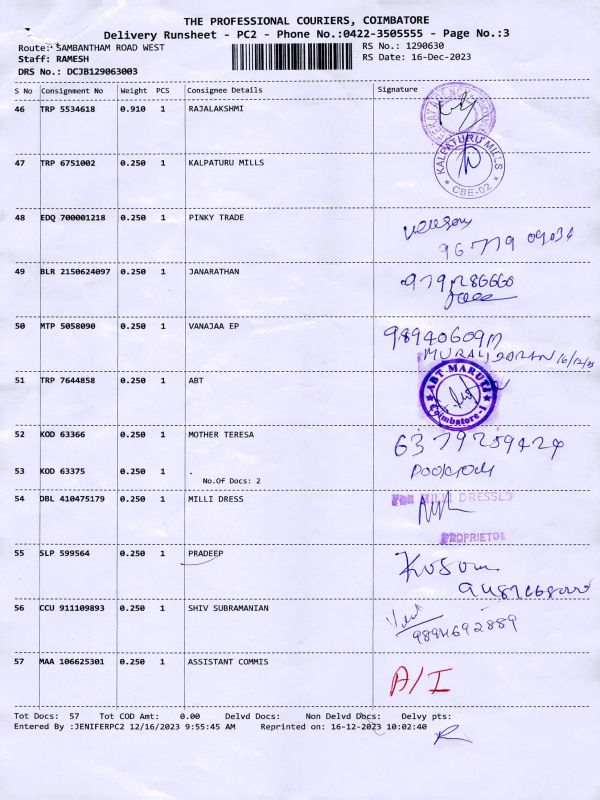 THE PROFESSIONAL COURIERS, COIMBATORE
Delivery Runsheet - PC2 - Phone No.:0422-3505555 - Page No.:3
Route: SAMBANTHAM ROAD WEST RS No.: 1290630
Staff: RAMESH RS Date: 16-Dec-2023
DRS No.: DCJB129063003
S No Consignment No Weight PCS Consignee Details Signature
46 TRP 5534618 0.910 1 RAJALAKSHMI
47 TRP 6751002 0.250 1 KALPATURU MILLS
KALPATURU MILLS
* CBE-02 *
48 EDQ 700001218 0.250 1 PINKY TRADE
49 BLR 2150624097 0.250 1 JANARATHAN
50 MTP 5058090 0.250 1 VANAJAA EP
MURALIDARAN 16/12/23
51 TRP 7644858 0.250 1 ABT
ABT MARUTI
Coimbatore-1
52 KOD 63366 0.250 1 MOTHER TERESA
6379259424
53 KOD 63375 0.250 1 .
No.Of Docs: 2
54 DBL 410475179 0.250 1 MILLI DRESS
FOR MILLI DRESSES
PROPRIETOR
55 SLP 599564 0.250 1 PRADEEP
56 CCU 911109893 0.250 1 SHIV SUBRAMANIAN
9894692889
57 MAA 106625301 0.250 1 ASSISTANT COMMIS
A/I
Tot Docs: 57 Tot COD Amt: 0.00 Delvd Docs: Non Delvd Docs: Delvy pts:
Entered By :JENIFERPC2 12/16/2023 9:55:45 AM Reprinted on: 16-12-2023 10:02:40